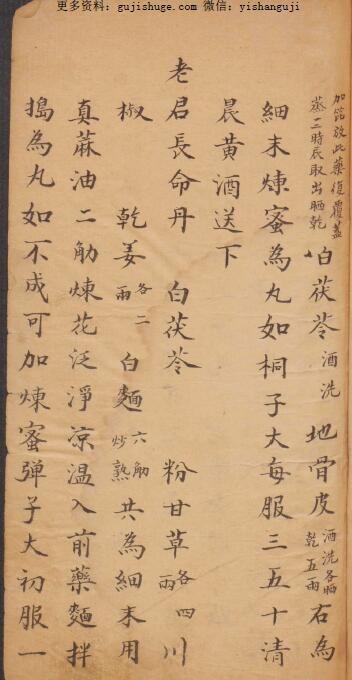 更多资料：gujishuge.com 微信：yishanguji
加箆放此藥復覆蓋
蒸二時辰取出晒乾
白茯苓酒洗 地骨皮酒洗各晒乾五兩 右為
細末煉蜜為丸如桐子大每服三五十清
晨黄酒送下
老君長命丹 白茯苓 粉甘草各四兩 川
椒 乾姜各二兩 白麵六觔炒熟 共為細末用
真蔴油二觔煉花泛淨凉温入前藥麵拌
搗為丸如不成可加煉蜜弹子大初服一